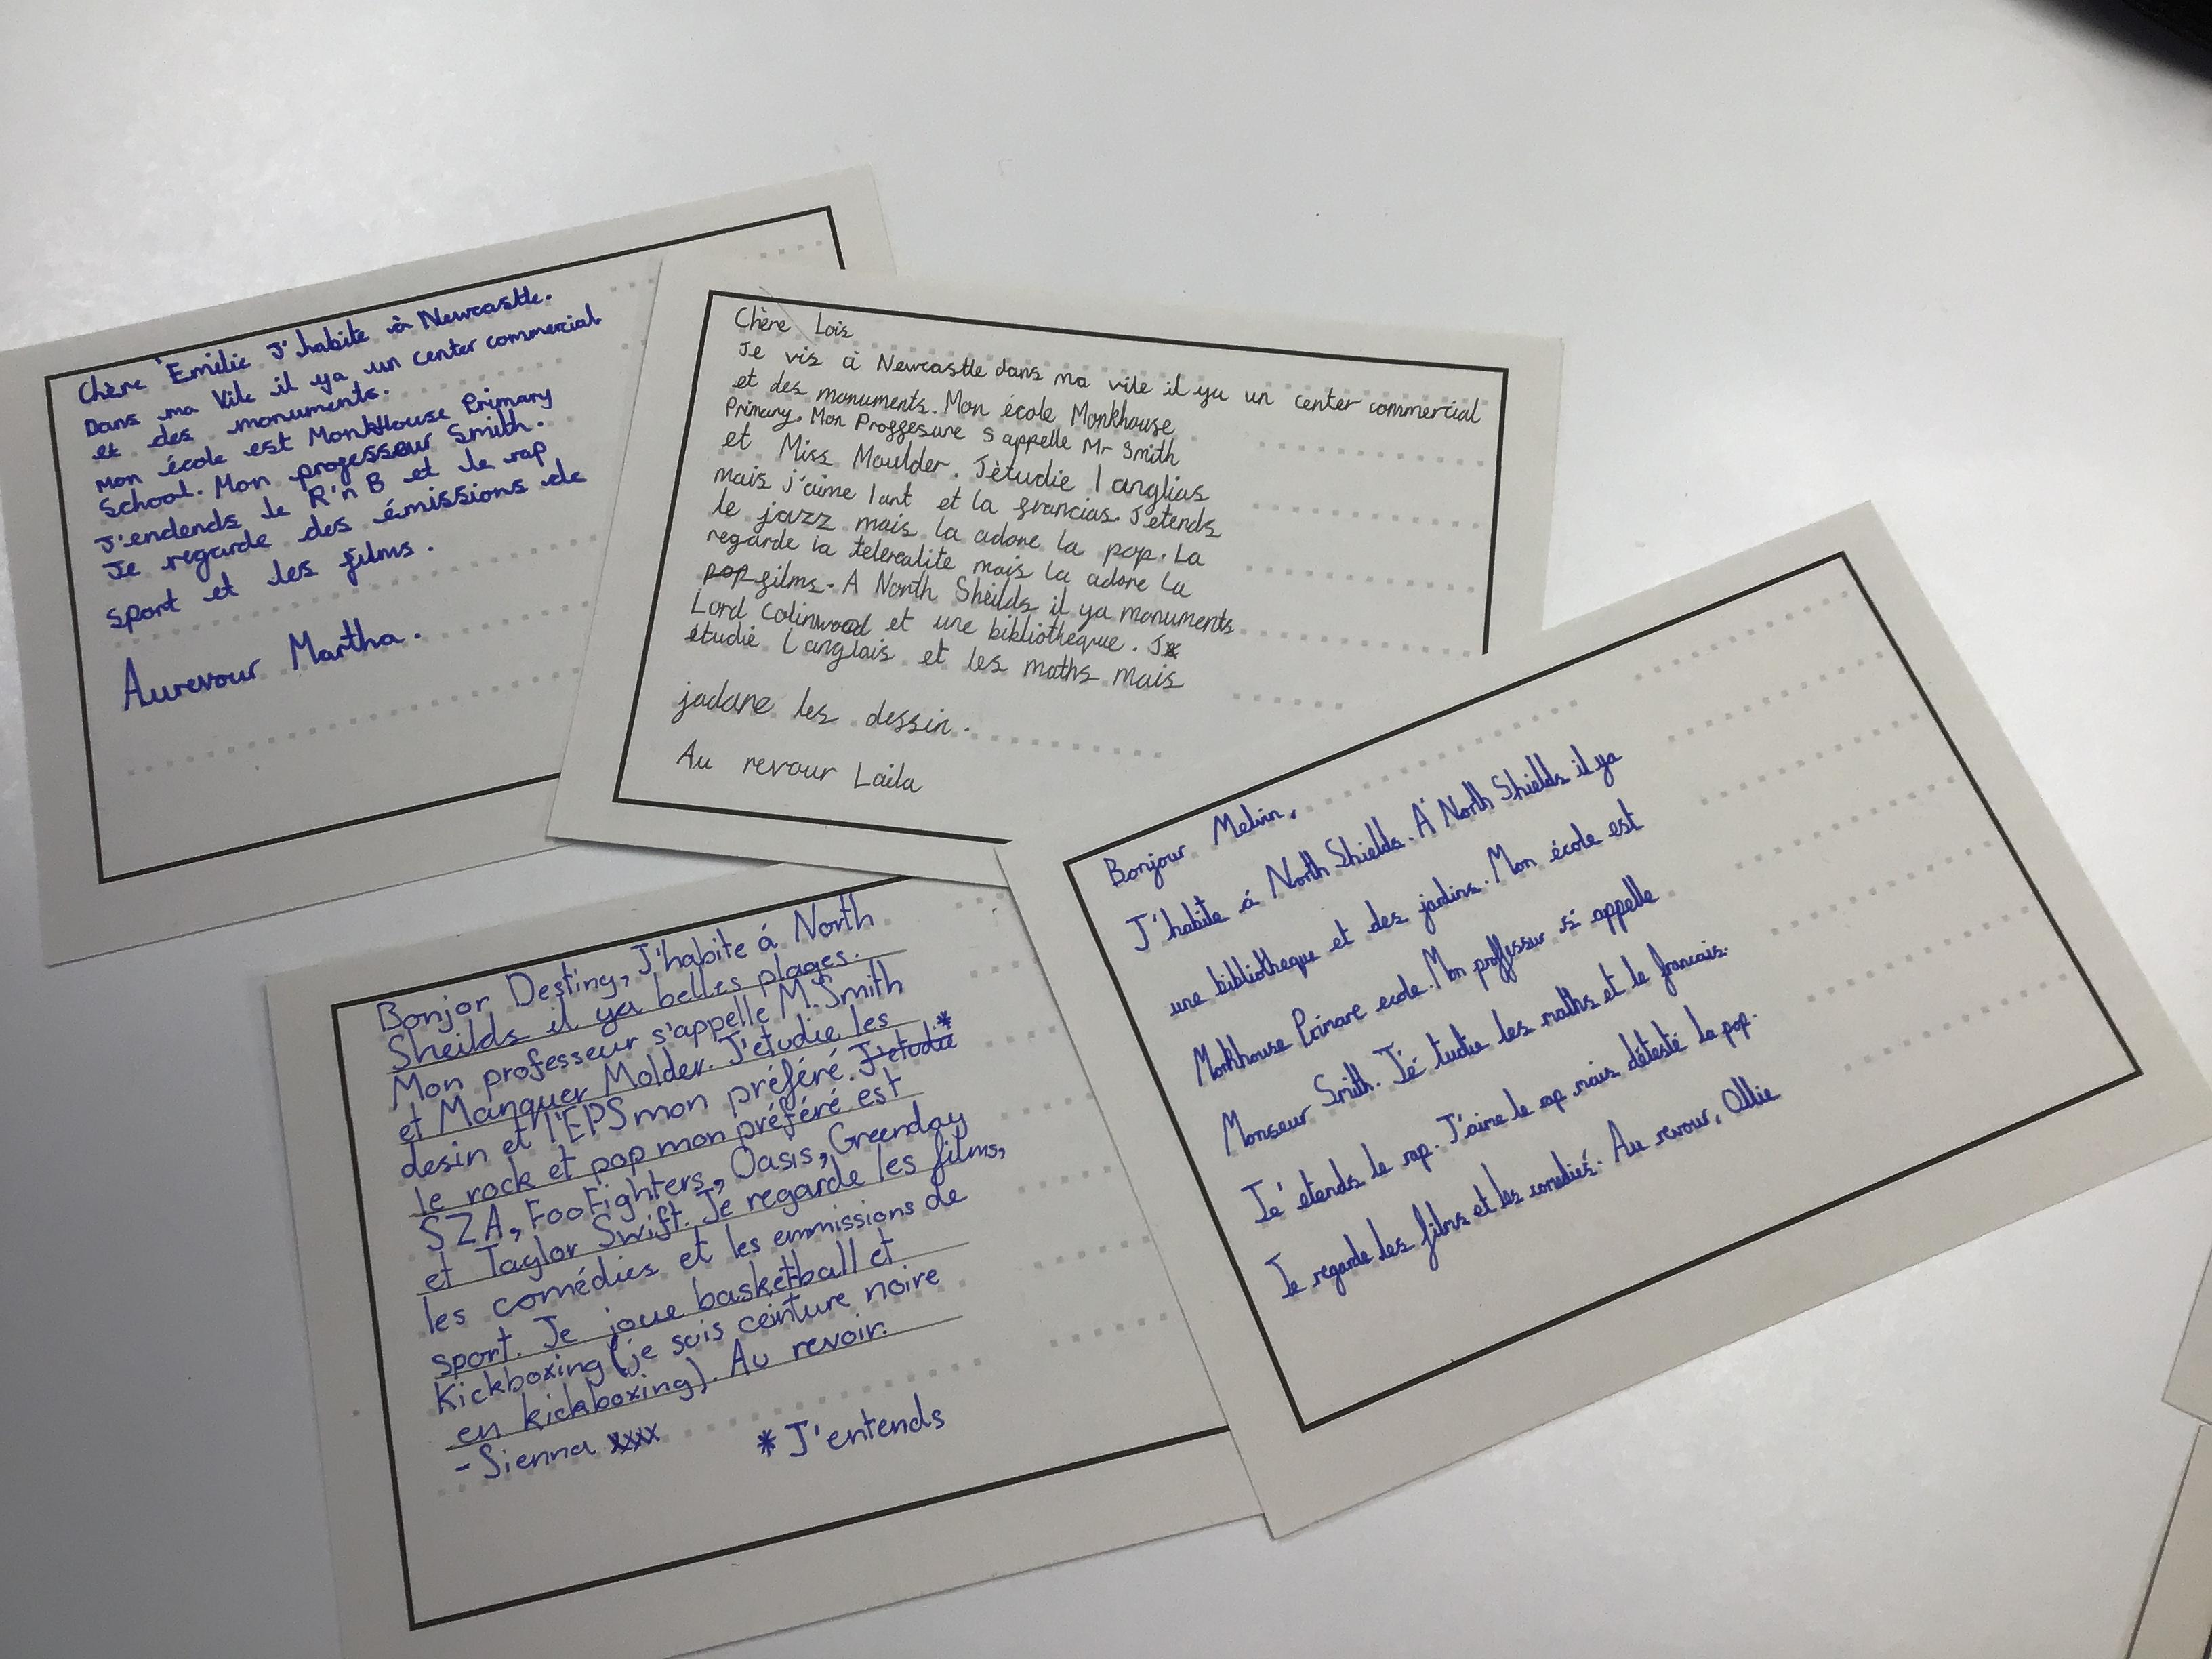 Chère Emilie J'habite à Newcastle.
Dans ma Vile il ya un center commercial
et des monuments.
Mon école est MonkHouse Primary
School. Mon professeur Smith.
J'endends le R'n B et le rap
Je regarde des émissions de
sport et les films.
Aurevour Martha.
Chère Lois
Je vis à Newcastle dans ma vile il ya un center commercial
et des monuments. Mon école Monkhouse
Primary. Mon Proffesure s appelle Mr Smith
et Miss Moulder. J'ètudie l anglias
mais j'aime lant et la francias. J'etends
le jazz mais la adore la pop. La
regarde la telerealite mais la adore la
pop films. A North Sheilds il ya monuments
Lord Colinwood et une bibliotheque. J
étudie l anglais et les maths mais
jadore les dessin.
Au revour Laila
Bonjor Destiny, J'habite á North
Sheilds il ya belles plages.
Mon professeur s'appelle M. Smith
et Manquer Molder. J'etudie les
desin et l'EPS mon préféré. J'etudie*
le rock et pop mon préféré est
SZA, FooFighters, Oasis, Greenday
et Taylor Swift. Je regarde les films,
les comédies et les emmissions de
sport. Je joue basketball et
Kickboxing (je suis ceinture noire
en kickboxing). Au revoir.
-Sienna xxxx
*J'entends
Bonjour Melvin,
J'habite á North Shields. Á North Shields il ya
une bibliotheque et des jardins. Mon école est
Monkhouse Primare ecole. Mon proffessur s' appelle
Monseur Smith. Jé tudie les maths et le francais.
Je' etends le rap. J'aime le rap mais détesté la pop.
Je regarde les films et les comedies. Au revour, Ollie